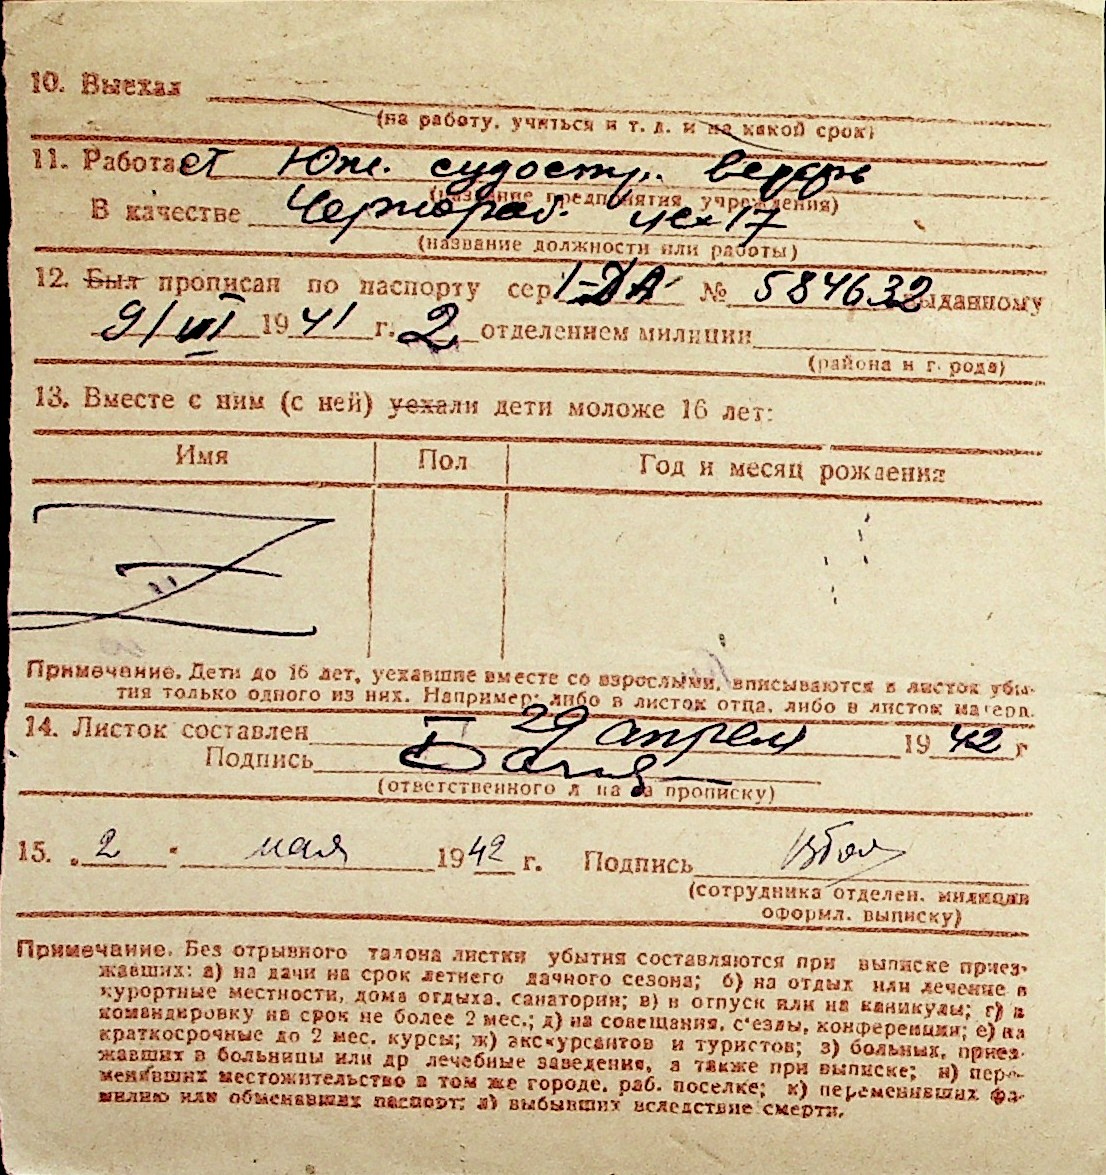 10. Выехал
(на работу, учиться и т. д. и на какой срок)
11. Работает Юж. судостр. верфь
(название предприятия учреждения)
В качестве Чернораб. цех 17
(название должности или работы)
12. Был прописан по паспорту сер I-ДА № 584632 выданному
9/VII 1941 г. 2 отделением милиции
(района и г рода)
13. Вместе с ним (с ней) уехали дети моложе 16 лет:
Имя Пол Год и месяц рождения
Примечание. Дети до 16 лет, уехавшие вместе со взрослыми, вписываются в листок убы-
тия только одного из них. Например: либо в листок отца, либо в листок матери.
14. Листок составлен 29 апреля 1942 г
Подпись
(ответственного л ца за прописку)
15. „2“ мая 1942 г. Подпись
(сотрудника отделен. милиции
оформл. выписку)
Примечание. Без отрывного талона листки убытия составляются при выписке приез-
жавших: а) на дачи на срок летнего дачного сезона; б) на отдых или лечение в
курортные местности, дома отдыха, санатории; в) в отпуск или на каникулы; г) в
командировку на срок не более 2 мес.; д) на совещания, с'езды, конференции; е) на
краткосрочные до 2 мес. курсы; ж) экскурсантов и туристов; з) больных, приез-
жавших в больницы или др лечебные заведения, а также при выписке; и) пере-
менивших местожительство в том же городе, раб. поселке; к) переменивших фа-
милию или обменявших паспорт; л) выбывших вследствие смерти.